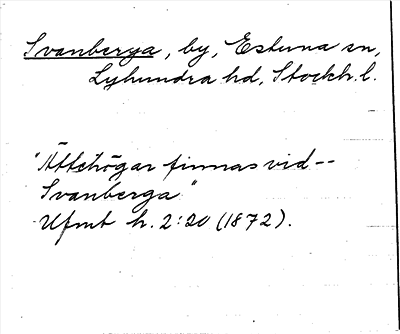 Svanberga, by, Estuna sn,
Lyhundra hd, Stockh. l.
"Ättehögar finnas vid--
Svanberga"
Ufmt h. 2:20 (1872).